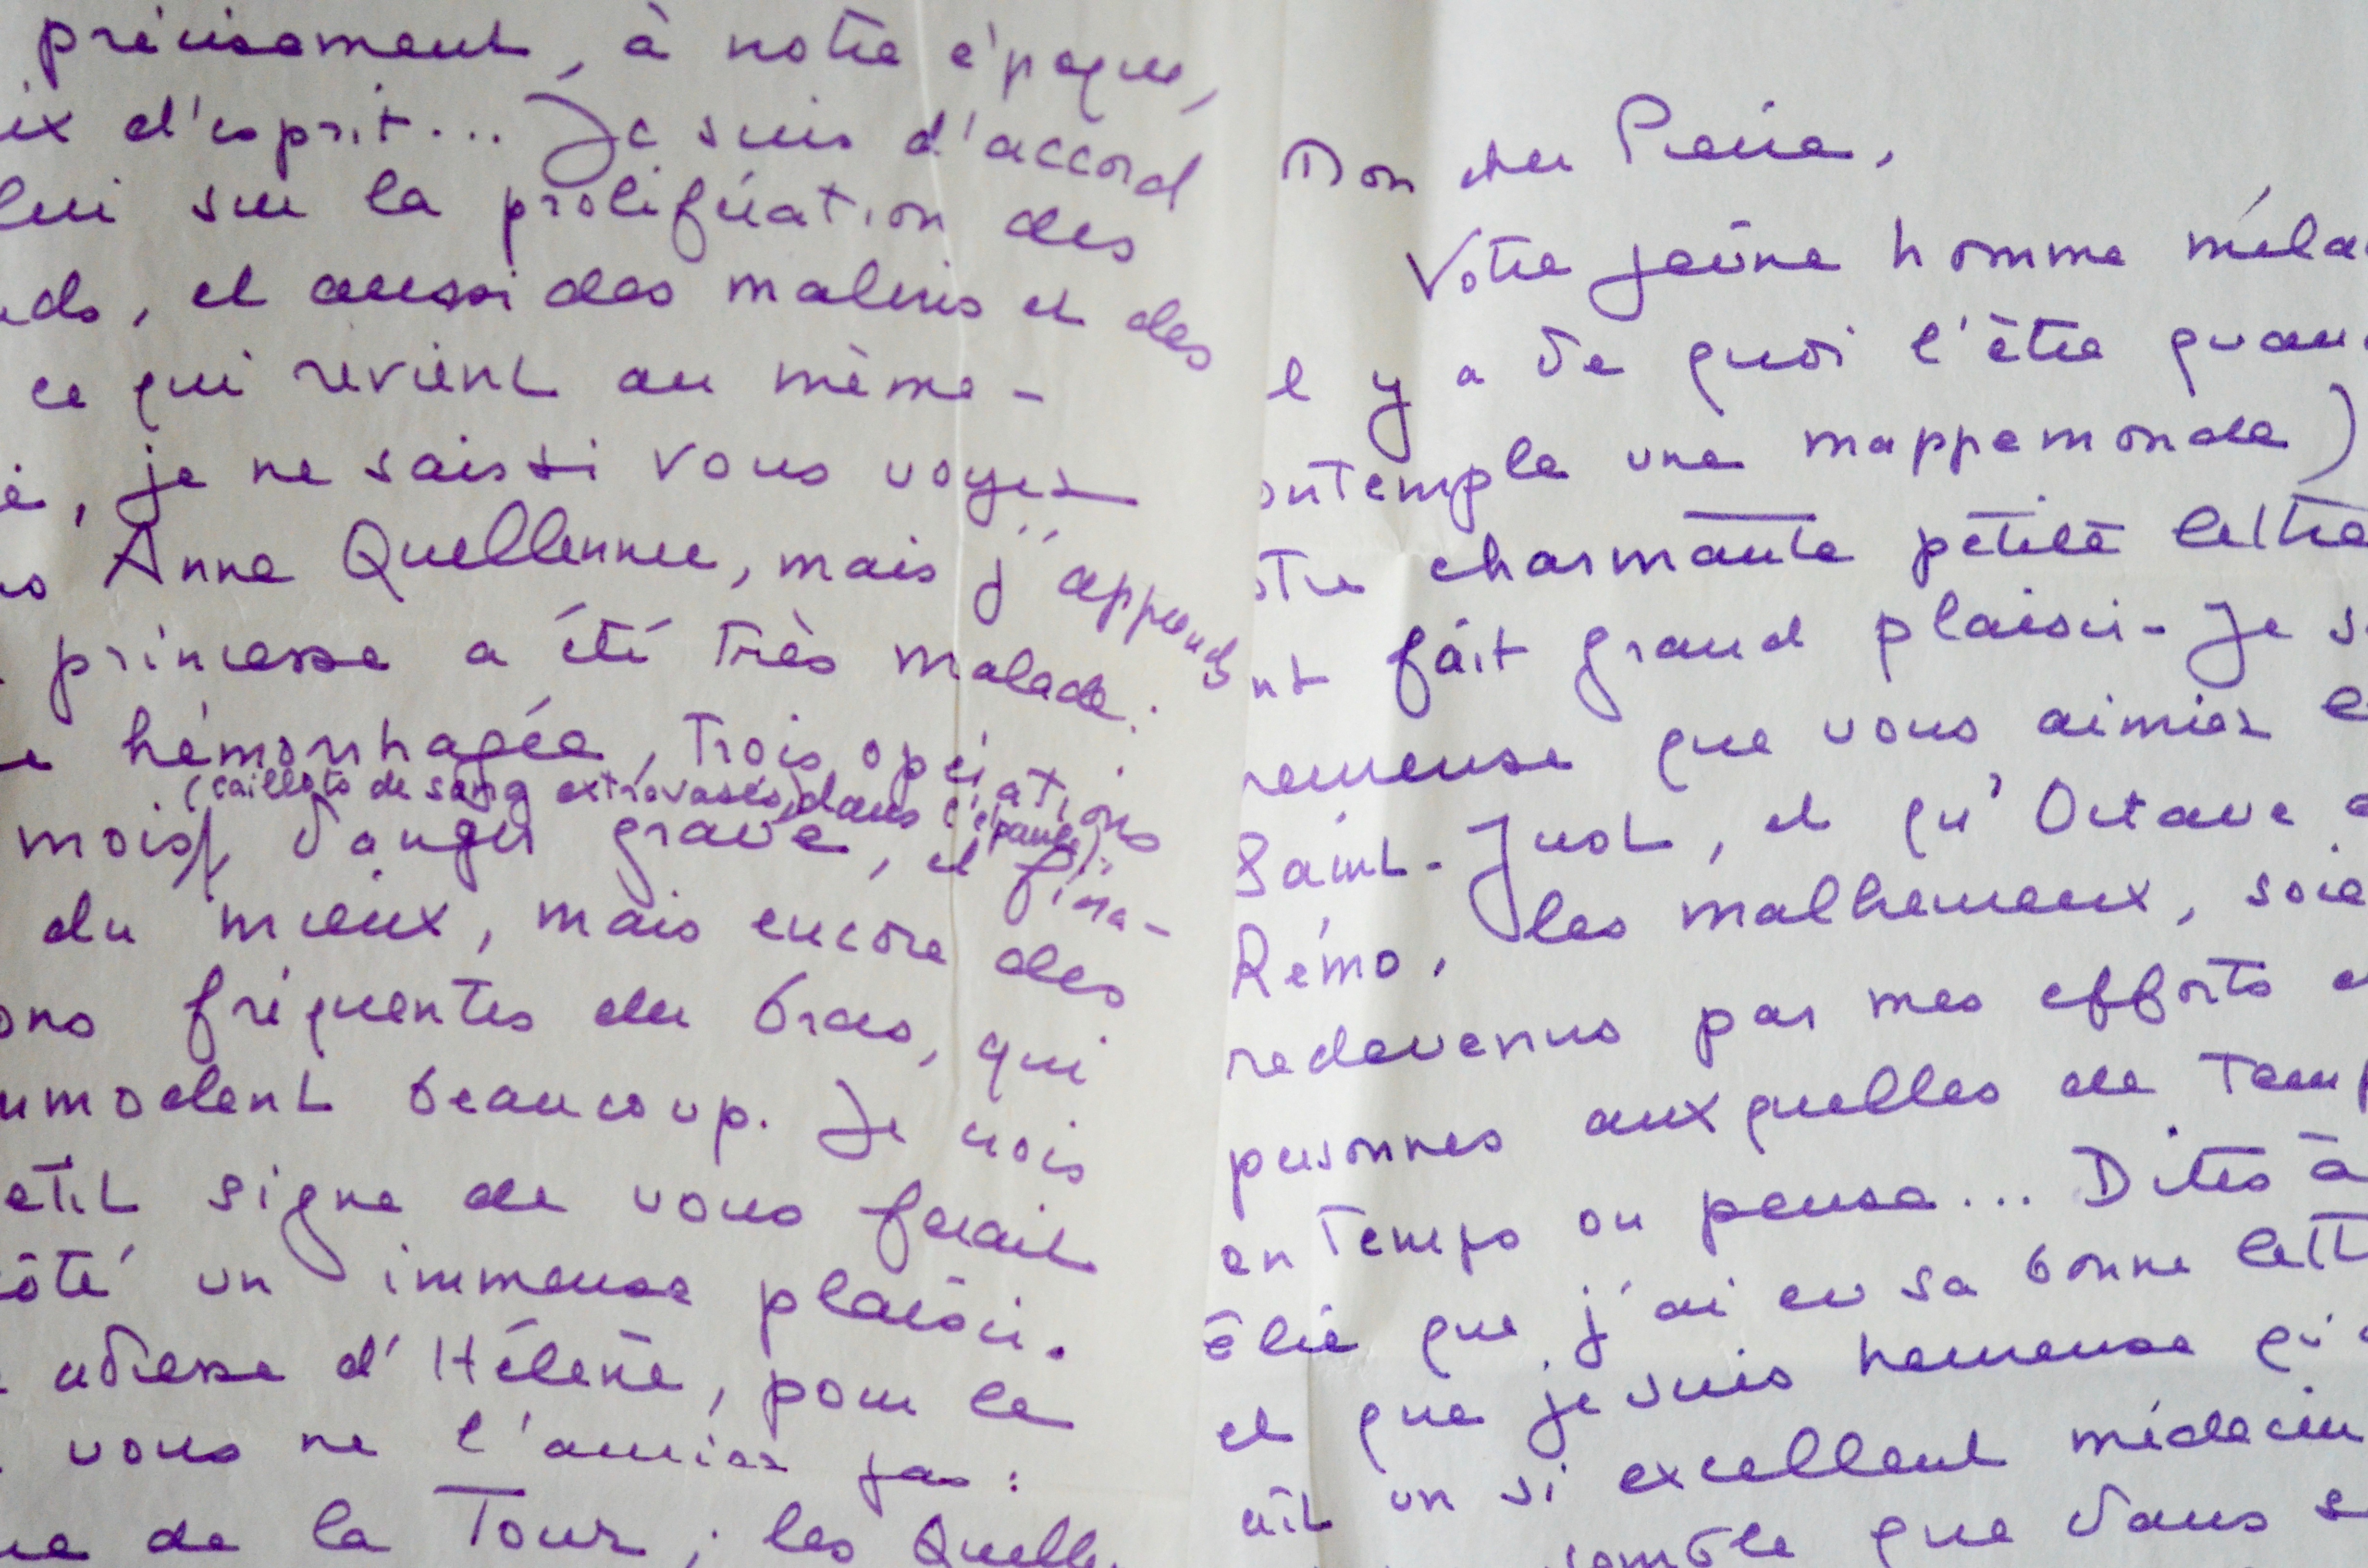 précisément, à notre époque,
ix d'esprit... Je suis d'accord
lui sur la prolifération des
ds, et aussi des malins et des
ce qui revient au même -
é, je ne sais si vous voyez
Anne Quellennec, mais j'apprends
princesse a été très malade :
e hémorrhagie, trois opérations
(caillots de sang extravasés dans l'épaule)
mois, danger grave, et fina-
du mieux, mais encore des
ons fréquentes du bras, qui
mmodent beaucoup. Je crois
etit signe de vous ferait
côté un immense plaisir.
adresse d'Hélène, pour le
vous ne l'auriez pas :
ue de la Tour ; les Quelle
Mon cher Pierre,
Votre jeune homme méla
l y a de quoi l'être quan
ontemple une mappemonde)
otre charmante petite lettre
nt fait grand plaisir - Je s
reureuse que vous aimiez
Saint-Just, et qu'Octave
Rémo, les malheureux, soie
redevenus par mes efforts
personnes auxquelles de temp
en temps on pense... Dites à
Élie que j'ai eu sa bonne lett
et que je suis heureuse qu'
ait un si excellent médecin
semble que dans s